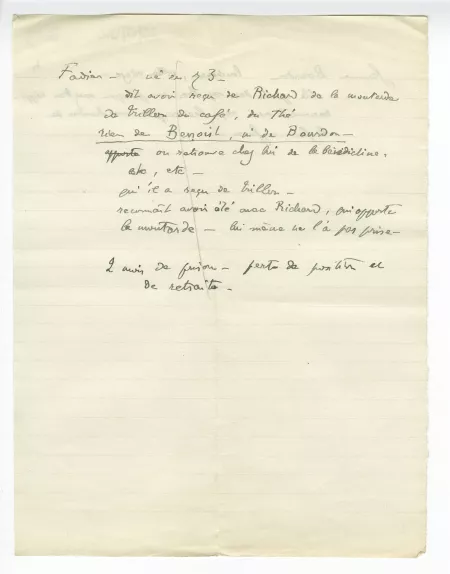 Fadin - né en 73 -
dit avoir reçu de Richard de la moutarde
de Trillon du café, du thé
rien de Benoit, ni de Bourdon -
apporte on retrouve chez lui de la bénédictine.
etc, etc -
qu'il a reçu de Trillon -
reconnait avoir été avec Richard, qui apporte
la moutarde - lui même ne l'a pas prise -
2 mois de prison - perte de position et
de retraite -